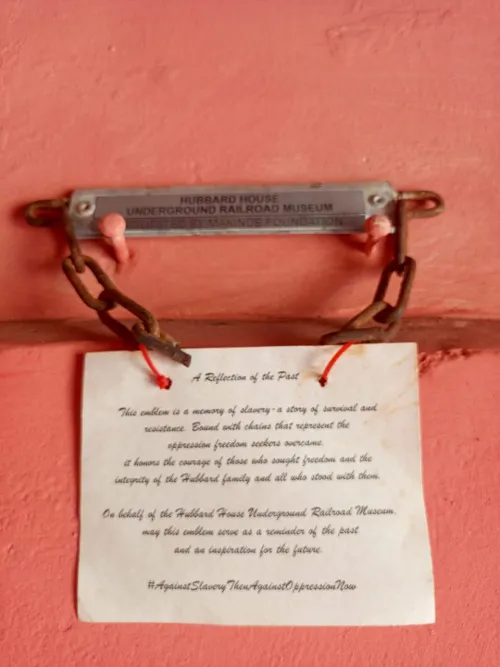 HUBBARD HOUSE
UNDERGROUND RAILROAD MUSEUM
MAKINDE FOUNDATION
A Reflection of the Past
This emblem is a memory of slavery-a story of survival and
resistance. Bound with chains that represent the
oppression freedom seekers overcame.
it honors the courage of those who sought freedom and the
integrity of the Hubbard family and all who stood with them.
On behalf of the Hubbard House Underground Railroad Museum,
may this emblem serve as a reminder of the past
and an inspiration for the future.
#AgainstSlaveryThenAgainstOppressionNow